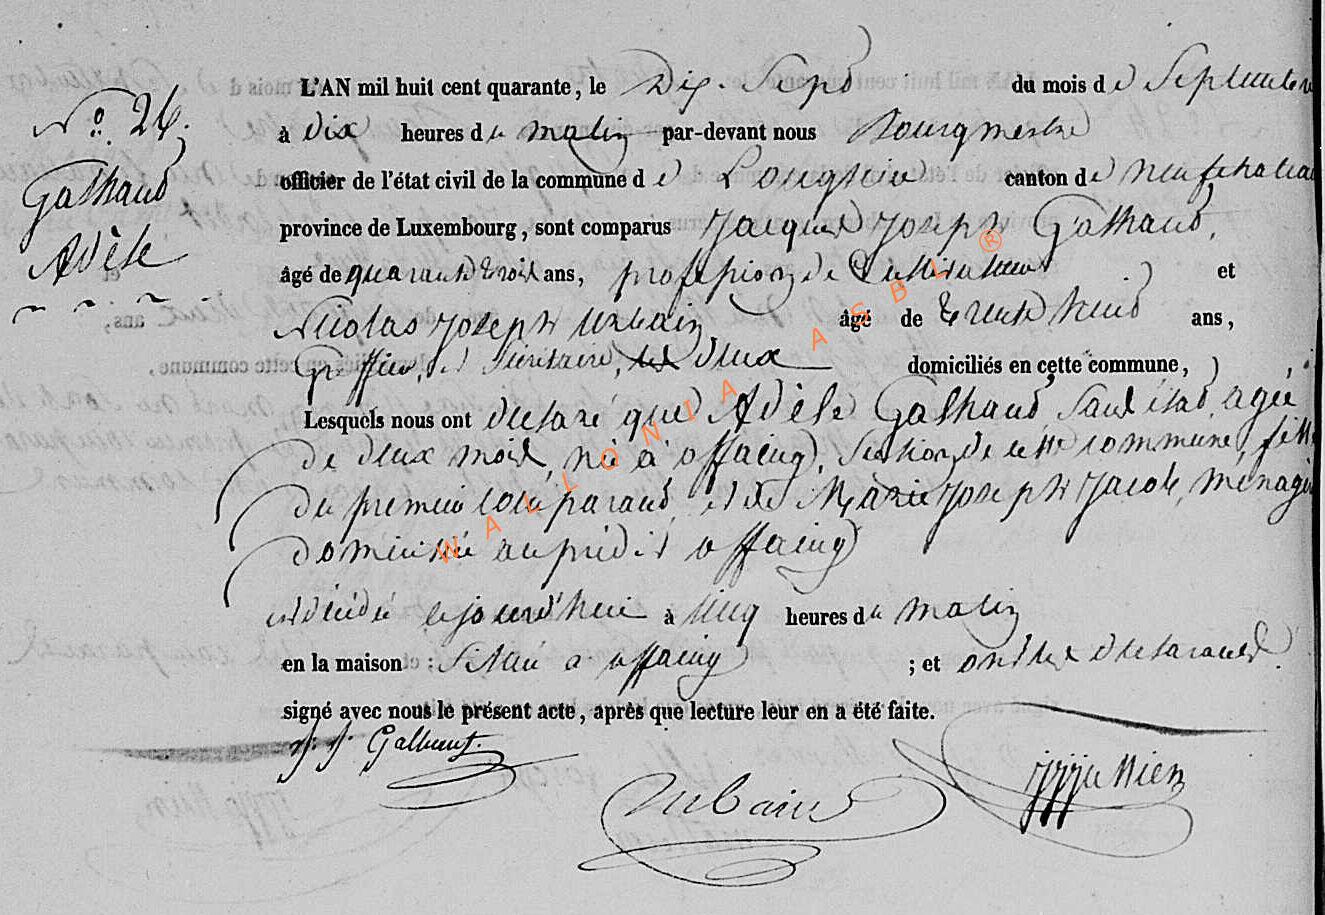 N.º 24.
Galhaud
Adèle
L'AN mil huit cent quarante, le Dix-Sept du mois de Septembre
à dix heures du matin par-devant nous Bourgmestre
officier de l'état civil de la commune de Longlier canton de neufchateau
province de Luxembourg, sont comparus Jacques Joseph Galhaud,
âgé de quarante trois ans, profession de Cultivateur et
Nicolas Joseph Urbain âgé de trente huit ans,
Greffier, et Secrétaire, les deux domiciliés en cette commune,
Lesquels nous ont declaré que Adèle Galhaud, sans état, agée
de deux mois, née à offaing, section de cette commune, fille
du premier comparant et de Marie Joseph Jacob, ménagère
domiciliée au prédit offaing
est décédée cejourd'hui à cinq heures du matin
en la maison : Située à offaing ; et ont les déclarants
signé avec nous le présent acte, après que lecture leur en a été faite.
J. J. Galhaut.
Urbain
WALLONIA ASBL ®